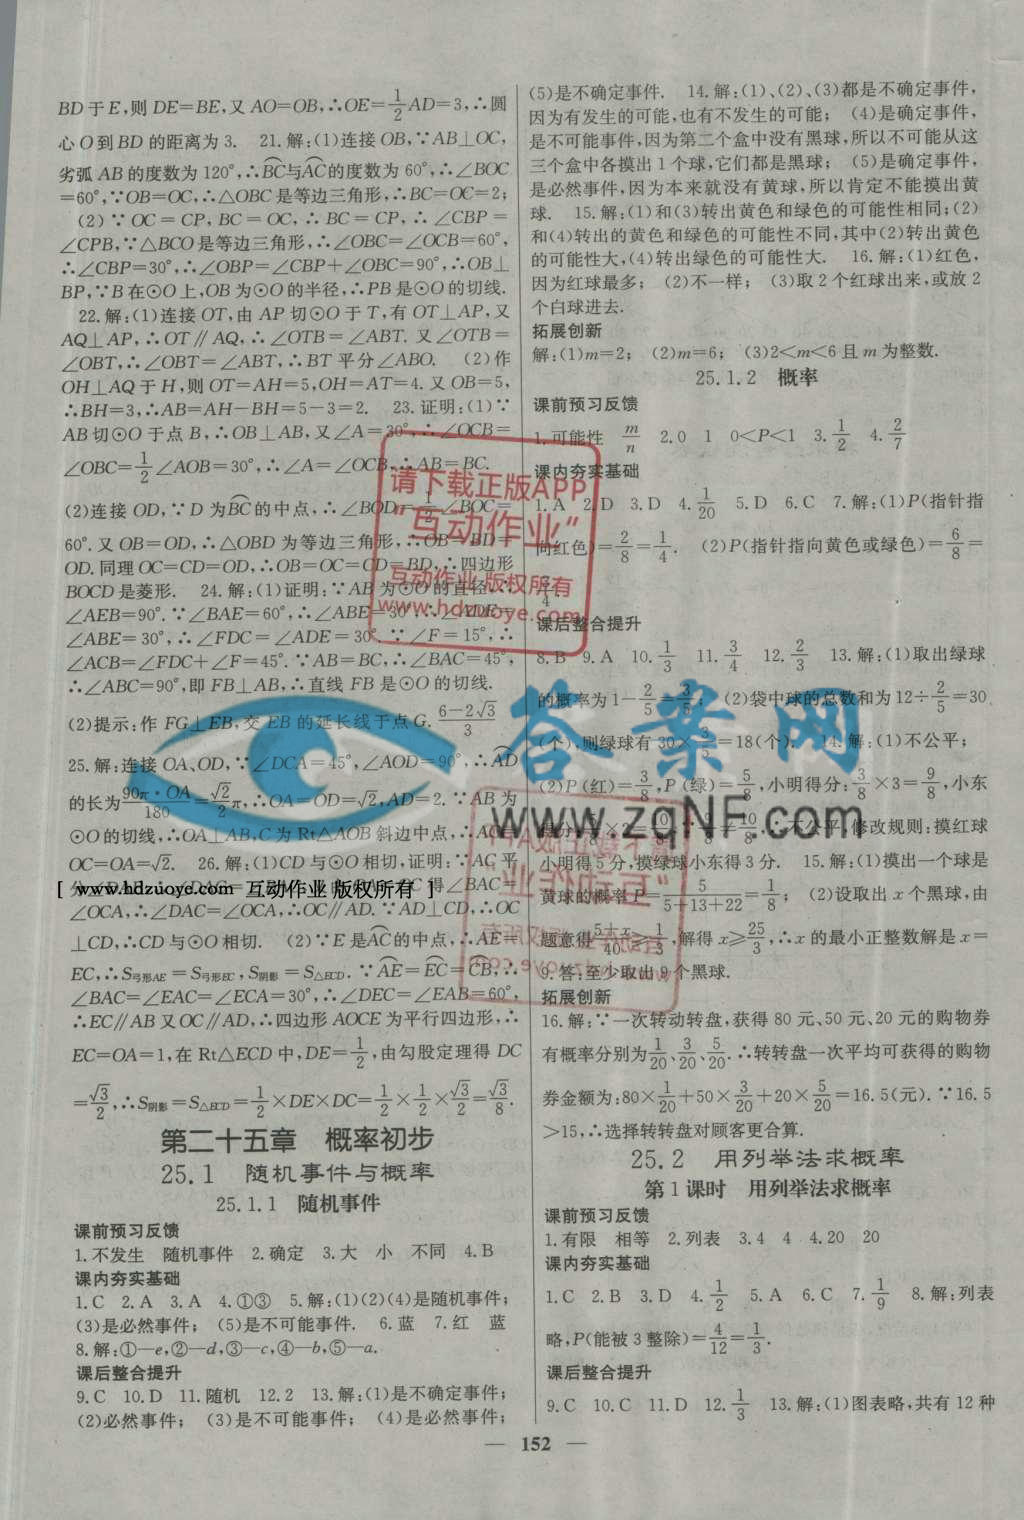 BD于E,则DE=BE,又AO=OB,∴OE=1/2AD=3,∴圆
心O到BD的距离为3. 21.解:(1)连接OB,∵AB⊥OC,
劣弧AB的度数为120°,∴BC与AC的度数为60°,∴∠BOC
=60°,∵OB=OC,∴△OBC是等边三角形,∴BC=OC=2;
(2)∵OC=CP,BC=OC,∴BC=CP,∴∠CBP=
∠CPB,∵△BCO是等边三角形,∴∠OBC=∠OCB=60°,
∴∠CBP=30°,∴∠OBP=∠CBP+∠OBC=90°,∴OB⊥
BP,∵B在⊙O上,OB为⊙O的半径,∴PB是⊙O的切线.
22.解:(1)连接OT,由AP切⊙O于T,有OT⊥AP,又
AQ⊥AP,∴OT∥AQ,∴∠OTB=∠ABT.又∠OTB=
∠OBT,∴∠OBT=∠ABT,∴BT平分∠ABO. (2)作
OH⊥AQ于H,则OT=AH=5,OH=AT=4.又OB=5,
∴BH=3,∴AB=AH-BH=5-3=2. 23.证明:(1)∵
AB切⊙O于点B,∴OB⊥AB,又∠A=30°,∴∠OCB=
∠OBC=1/2∠AOB=30°,∴∠A=∠OCB,∴AB=BC.
(2)连接OD,∵D为BC的中点,∴∠BOD=1/2∠BOC=
60°.又OB=OD,∴△OBD为等边三角形,∴OB=BD=
OD.同理OC=CD=OD,∴OB=OC=CD=BD,∴四边形
BOCD是菱形. 24.解:(1)证明:∵AB为⊙O的直径,∴
∠AEB=90°.∵∠BAE=60°,∴∠ABE=30°,∴∠ADE=
∠ABE=30°,∴∠FDC=∠ADE=30°.∵∠F=15°,∴
∠ACB=∠FDC+∠F=45°.∵AB=BC,∴∠BAC=45°,
∴∠ABC=90°,即FB⊥AB,∴直线FB是⊙O的切线.
(2)提示:作FG⊥EB,交EB的延长线于点G.(6-2√3)/3
25.解:连接OA、OD,∵∠DCA=45°,∠AOD=90°,∴AD
的长为90π·OA/180=√2/2π,∴OA=OD=√2,AD=2.∵AB为
⊙O的切线,∴OA⊥AB,C为Rt△AOB斜边中点,∴AC=
OC=OA=√2. 26.解:(1)CD与⊙O相切,证明:∵AC平
[ www.hdzuoye.com 互动作业 版权所有 ]
∠OCA,∴∠DAC=∠OCA,∴OC∥AD.∵AD⊥CD,∴OC
⊥CD,∴CD与⊙O相切. (2)∵E是AC的中点,∴AE=
EC,∴S弓形AE=S弓形EC,S阴影=S△ECD.∵AE=EC=CB,∴
∠BAC=∠EAC=∠ECA=30°,∴∠DEC=∠EAB=60°,
∴EC∥AB又OC∥AD,∴四边形AOCE为平行四边形,∴
EC=OA=1,在Rt△ECD中,DE=1/2,由勾股定理得DC
=√3/2,∴S阴影=S△ECD=1/2×DE×DC=1/2×1/2×√3/2=√3/8.
第二十五章 概率初步
25.1 随机事件与概率
25.1.1 随机事件
课前预习反馈
1.不发生 随机事件 2.确定 3.大 小 不同 4.B
课内夯实基础
1.C 2.A 3.A 4.①③ 5.解:(1)(2)(4)是随机事件;
(3)是必然事件; (5)是不可能事件. 6.蓝 7.红 蓝
8.解:①—e,②—d,③—c,④—b,⑤—a.
课后整合提升
9.C 10.D 11.随机 12.2 13.解:(1)是不确定事件;
(2)必然事件; (3)是不可能事件; (4)是不确定事件;
(5)是不确定事件. 14.解:(1)、(2)、(3)都是不确定事件,
因为有发生的可能,也有不发生的可能; (4)是确定事件,
是不可能事件,因为第二个盒中没有黑球,所以不可能从这
三个盒中各摸出1个球,它们都是黑球; (5)是确定事件,
是必然事件,因为本来就没有黄球,所以肯定不能摸出黄
球. 15.解:(1)和(3)转出黄色和绿色的可能性相同;(2)
和(4)转出的黄色和绿色的可能性不同,其中(2)转出黄色
的可能性大,(4)转出绿色的可能性大. 16.解:(1)红色,
因为红球最多; (2)不一样; (3)取2个红球出来,或放2
个白球进去.
拓展创新
解:(1)m=2; (2)m=6; (3)2<m<6且m为整数.
25.1.2 概率
课前预习反馈
1.可能性 m/n 2.0 1 0<P<1 3.1/2 4.2/7
课内夯实基础
1.A 2.D 3.D 4.1/20 5.D 6.C 7.解:(1)P(指针指
向红色)=2/8=1/4. (2)P(指针指向黄色或绿色)=6/8=
3/4
课后整合提升
8.B 9.A 10.1/3 11.3/4 12.2/3 13.解:(1)取出绿球
的概率为1-2/5=3/5; (2)袋中球的总数和为12÷2/5=30
(个),则绿球有30×3/5=18(个). 14.解:(1)不公平;
(2)P(红)=3/8,P(绿)=5/8,小明得分:3/8×3=9/8,小东
修改规则:摸红球
小明得5分,摸绿球小东得3分. 15.解:(1)摸出一个球是
黄球的概率P=5/(5+13+22)=1/8; (2)设取出x个黑球,由
题意得(5+x)/40≥1/3,解得x≥25/3,∴x的最小正整数解是x=
9.答:至少取出9个黑球.
拓展创新
16.解:∵一次转动转盘,获得80元、50元、20元的购物券
有概率分别为1/20、3/20、5/20.∴转转盘一次平均可获得的购物
券金额为:80×1/20+50×3/20+20×5/20=16.5(元).∵16.5
>15,∴选择转转盘对顾客更合算.
25.2 用列举法求概率
第1课时 用列举法求概率
课前预习反馈
1.有限 相等 2.列表 3.4 4 4.20 20
课内夯实基础
1.C 2.B 3.D 4.1/2 5.A 6.C 7.1/9 8.解:列表
略,P(能被3整除)=4/12=1/3.
课后整合提升
9.C 10.C 11.D 12.1/3 13.解:(1)图表略,共有12种
— 152 —
请下载正版APP
“互动作业”
互动作业 版权所有
www.hdzuoye.com
答案网
www.zqNF.com